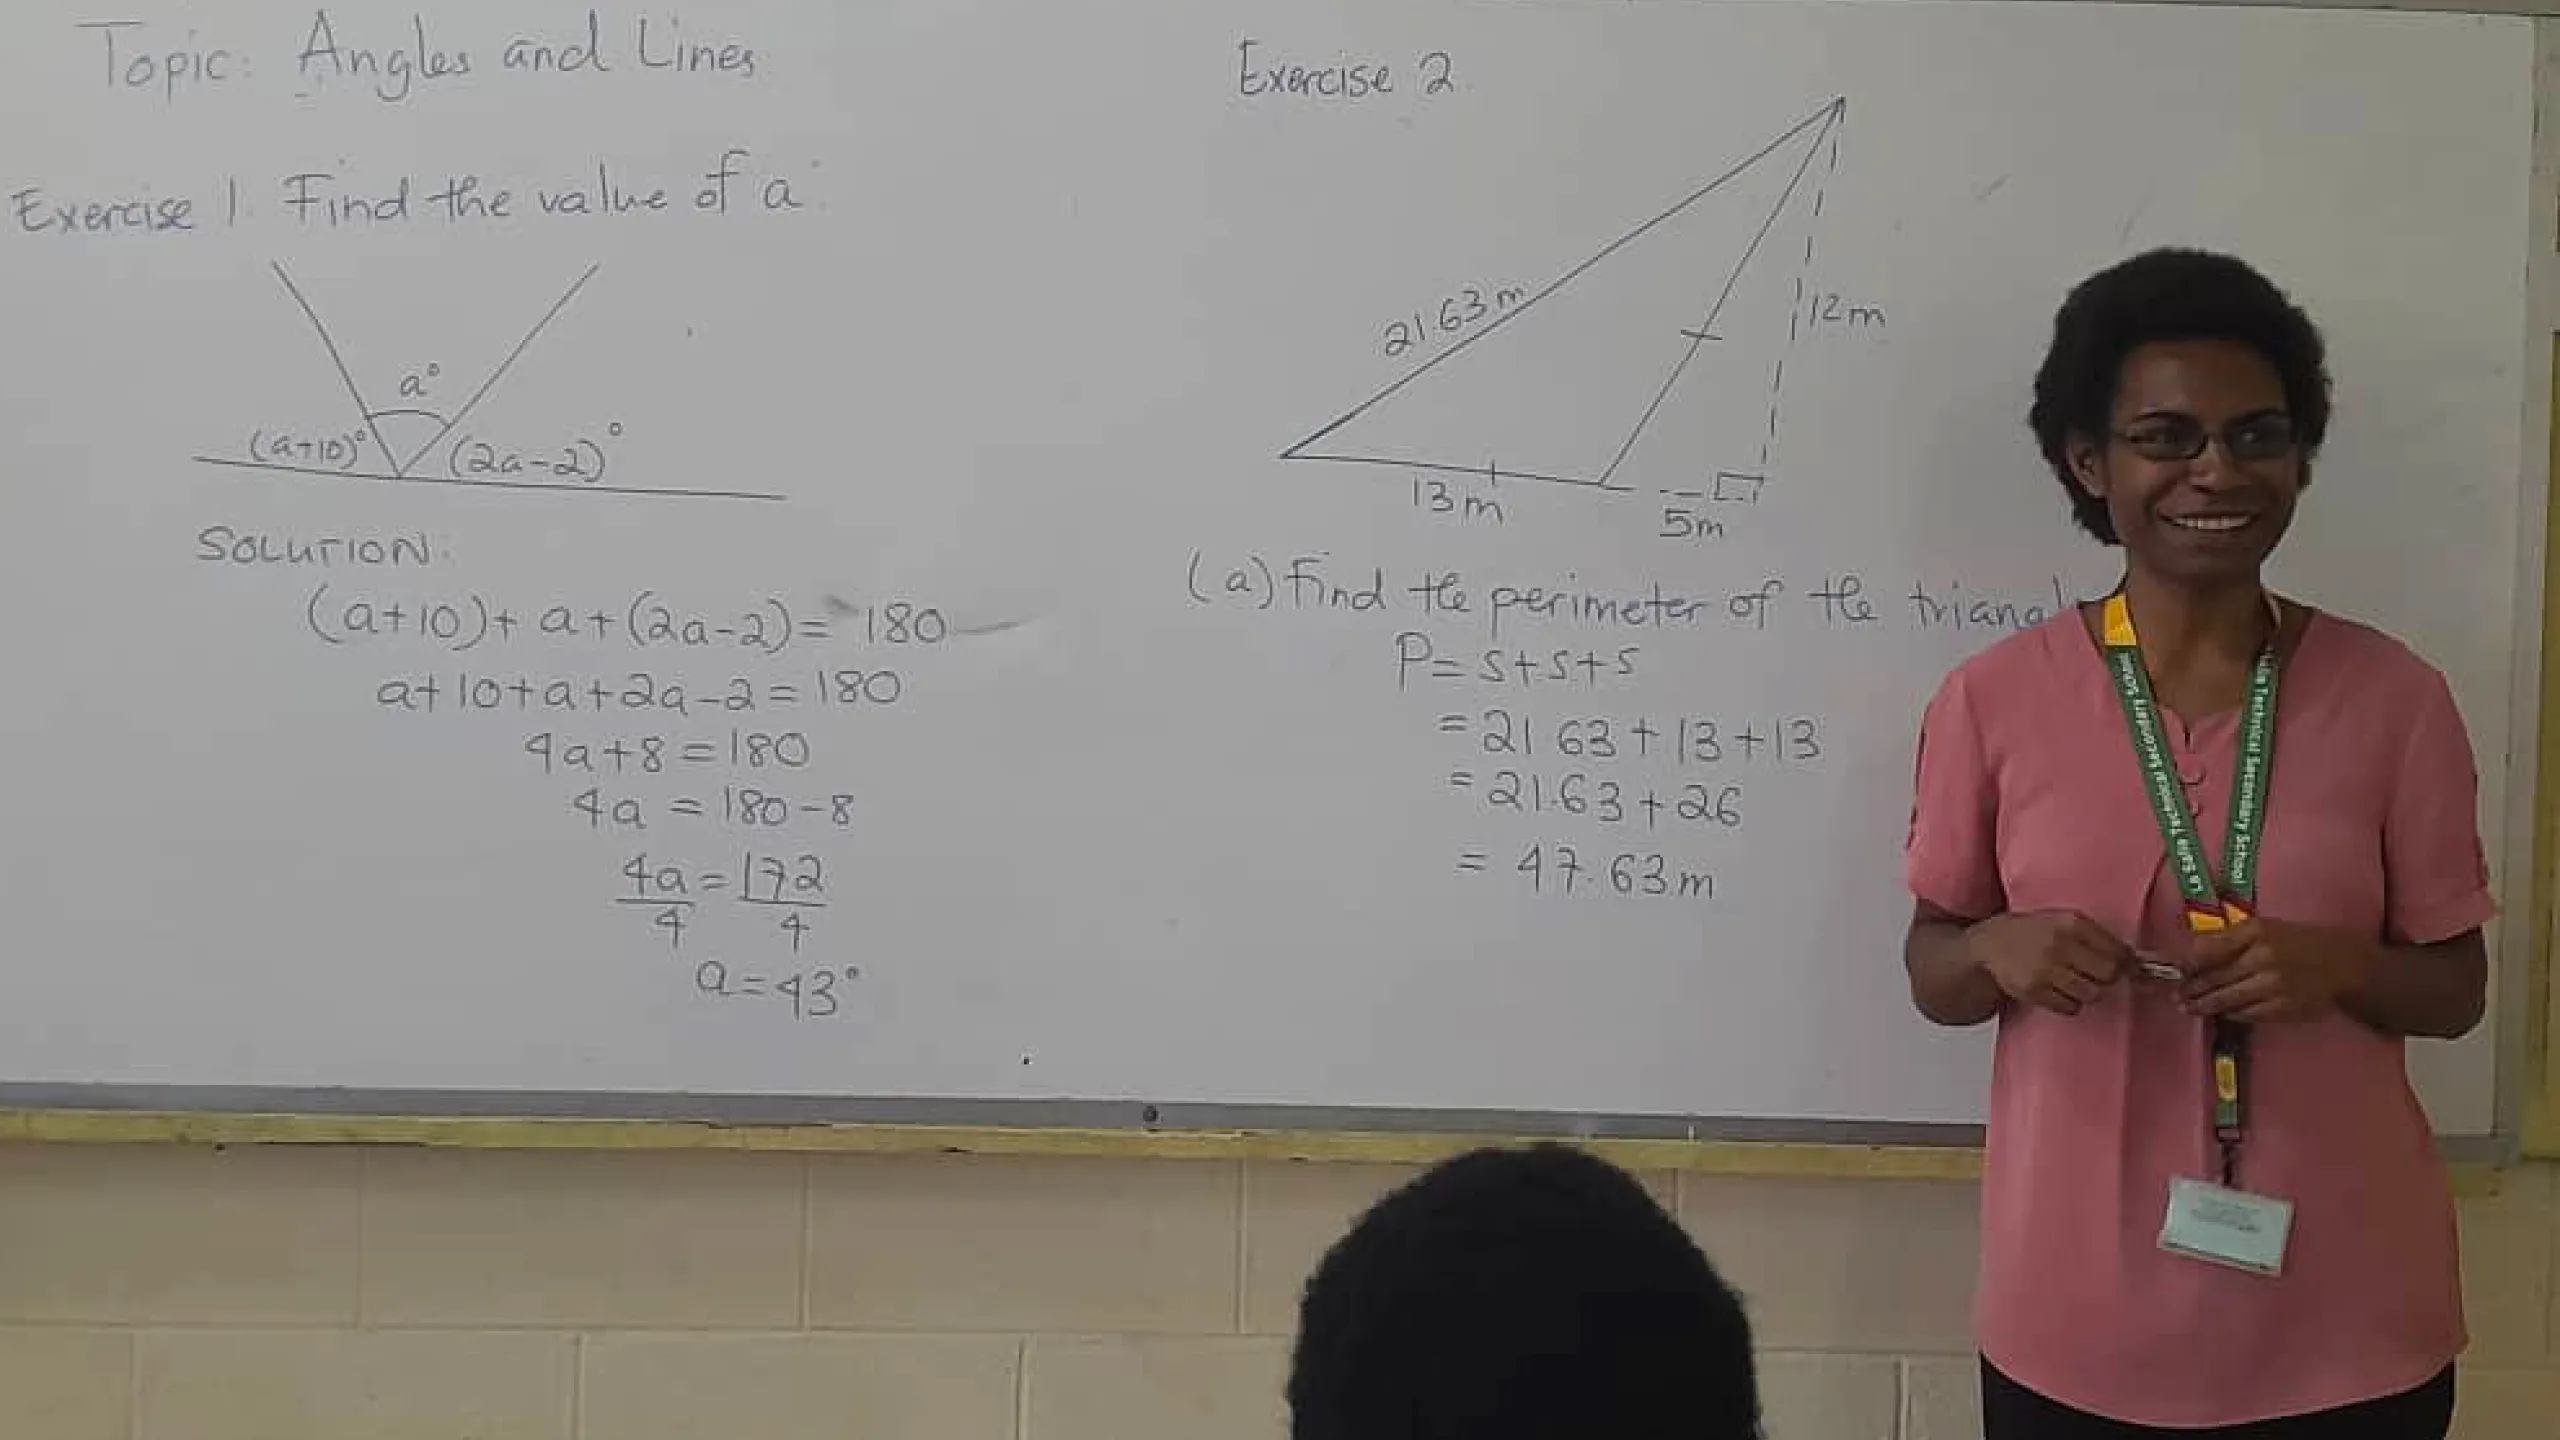 Topic: Angles and Lines
Exercise 1. Find the value of a.
a°
(a+10)° (2a-2)°
SOLUTION.
(a+10)+ a+(2a-2)= 180
a+10+a+2a-2=180
4a+8=180
4a = 180-8
4a=172
4 4
a=43°
Exercise 2
21.63m
12m
13m
5m
(a) Find the perimeter of the
P= s+s+s
= 21 63+13+13
= 21.63+26
= 47.63m
La Salle Technical Secondary School
La Salle Technical Secondary School